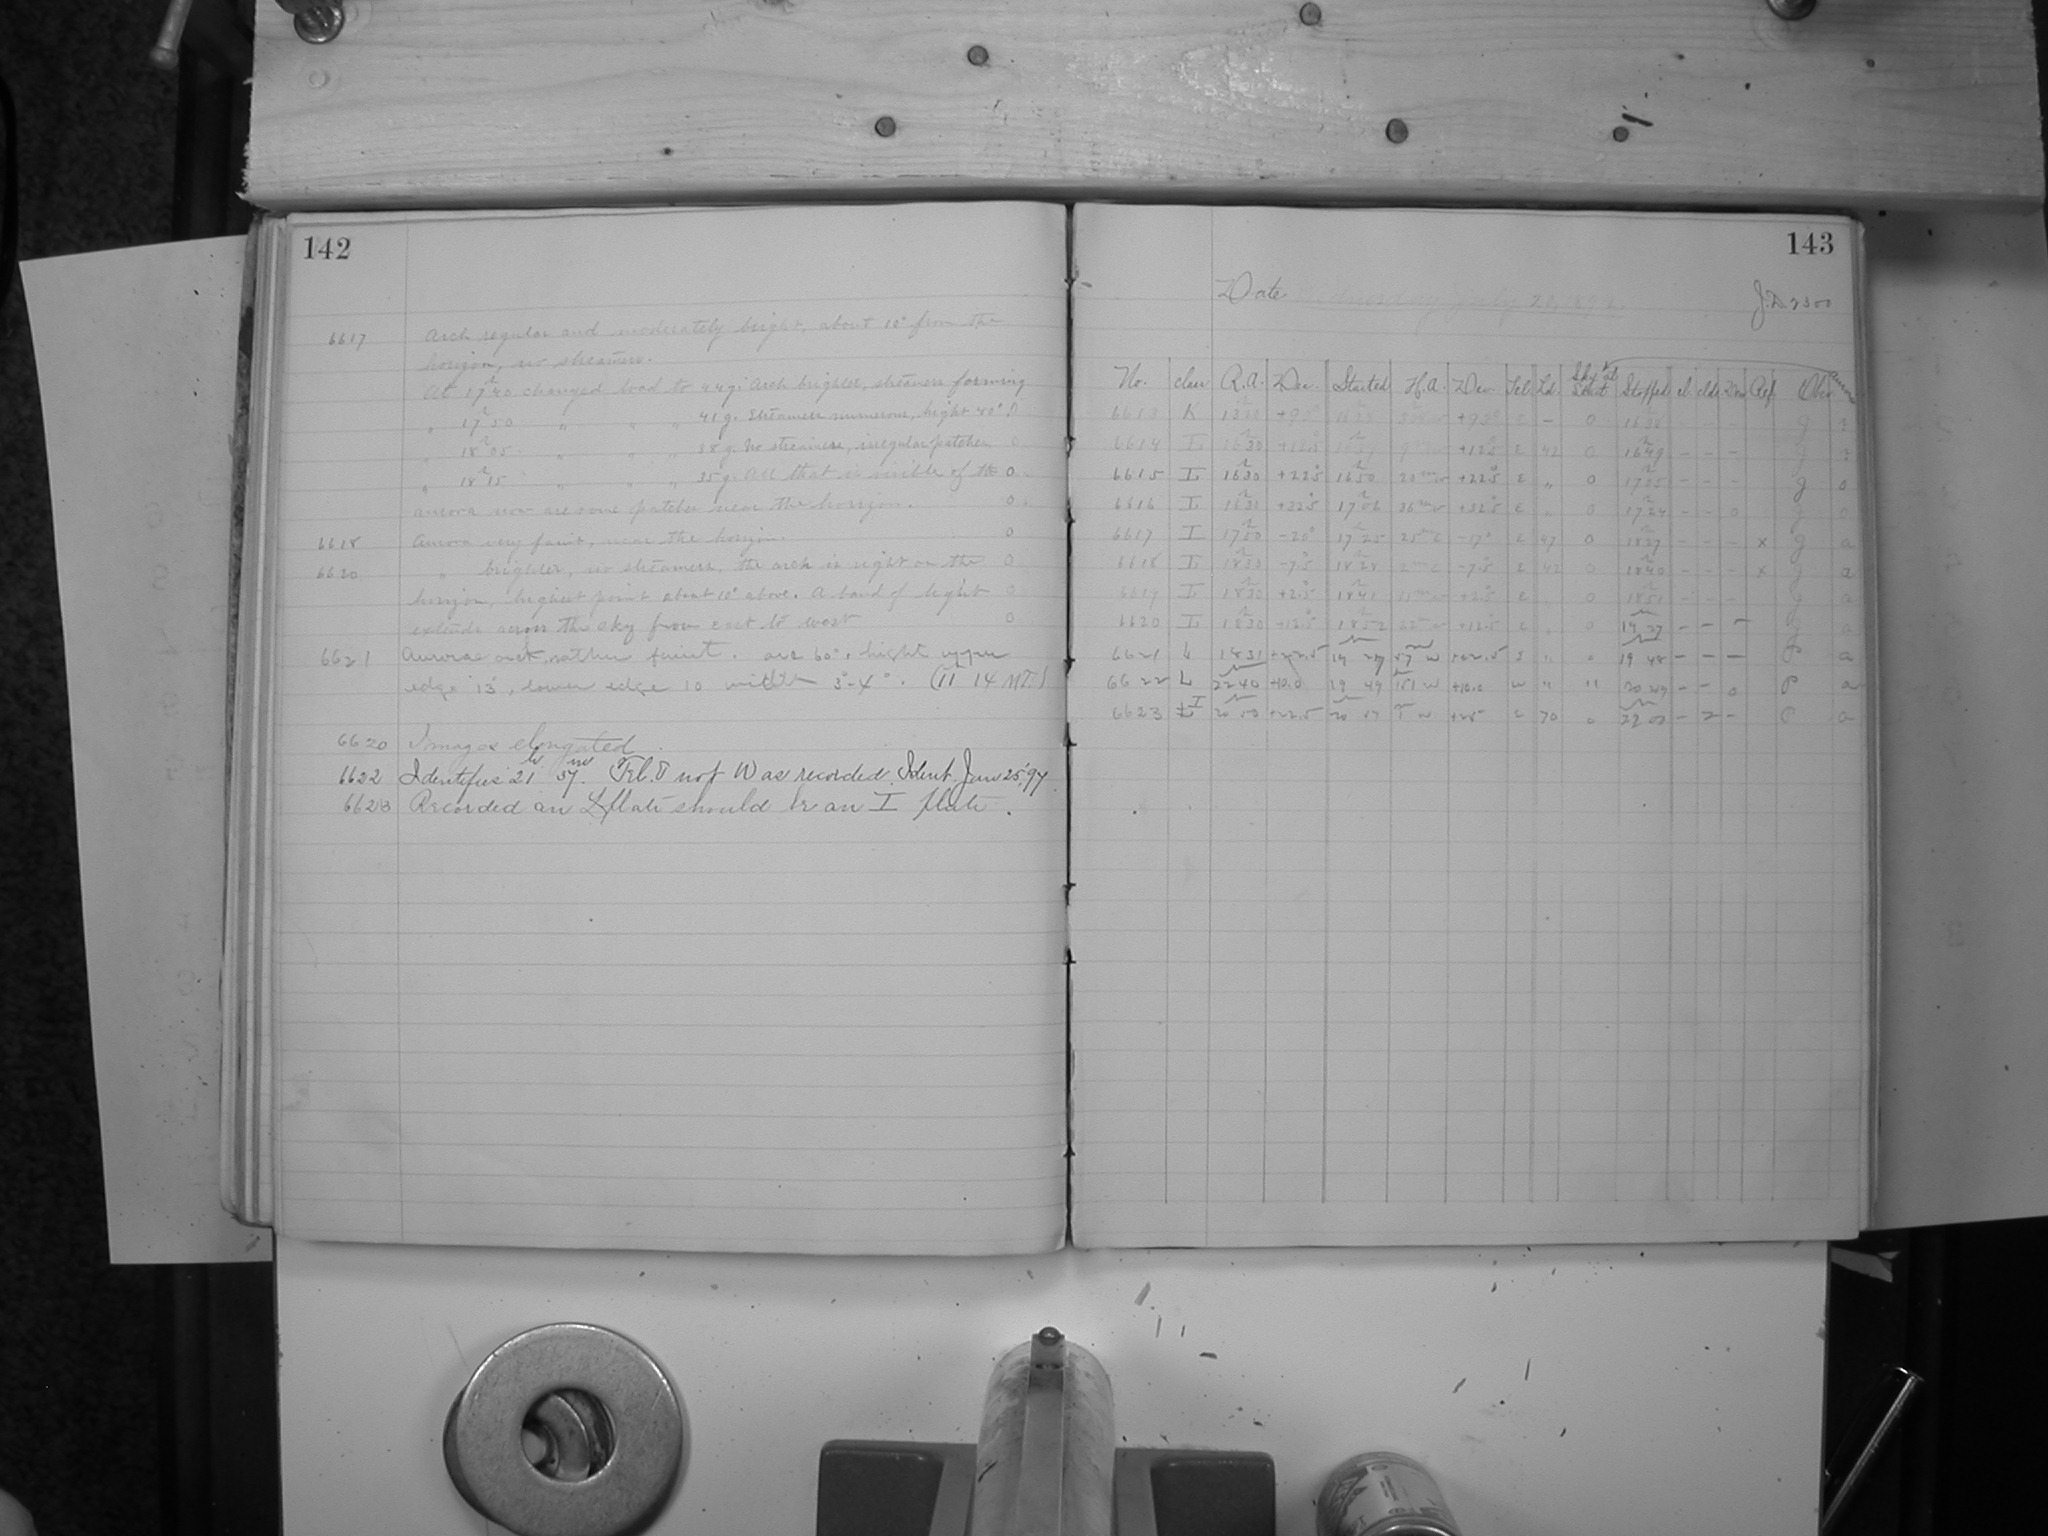 142
6617 Arch regular and moderately bright, about 10° from the
horizon, no streamers.
At 17h40 changed load to 44g. Arch brighter, streamers forming
" 17h50 " " " 41g. Streamers numerous, hight 40° 0
" 18h05 " " " 38g. No streamers, irregular patches 0
" 18h15 " " " 35g. All that is visible of the 0
aurora now are some patches near the horizon. 0
6618 Aurora very faint, near the horizon. 0
6620 " brighter, no streamers, the arch is right on the 0
horizon, highest point about 10° above. A band of light 0
extends across the sky from east to west 0
6621 Aurora arch, rather faint. arc 60°, hight upper
edge 13°, lower edge 10 width 3°-4°. (11 14 M.T.)
6620 Images elongated.
6622 Identifies 21h 57m. Tel. E not W as recorded. Ident. Jan 25, '97.
6623 Recorded an L plate should be an I plate.
143
Date Wednesday July 20, 189
J.D. 2300
No. class R.A. Dec. Started H.A. Dec. Tel. Ld. Sky at Start Stopped cl clds Dew Ref Obsr Aurora
6613 K +9 - 0 g
6614 L 16h30 +12.5 E 42 0 16h49 - - - g
6615 L 16h30 +22.5 16h50 20m w +22.5 E " 0 17h05 - - - g 0
6616 L 16h30 +32.5 17h06 36m w +32.5 E " 0 17h24 - - 0 g 0
6617 I 17h50 -20° 17h25 25m E -17° E 47 0 18h27 - - - x g a
6618 L 18h30 -7.5 18h28 2m E -7.5 E 42 0 18h40 - - - x g a
6619 L 18h30 +2.5 18h41 11m w +2.5 E " 0 18h51 - - - g a
6620 L 18h30 +12.5 18h52 22m w +12.5 E " 0 19 27 - - - g a
6621 L 1831 +22.5 19 28 57 w +22.5 E " 0 19 48 - - - P a
6622 L 2240 +10.0 19 49 w +10.0 w " " 20 49 - - 0 P a
6623 L I 20 50 +22.5 E 70 0 22 02 - 2 - P a